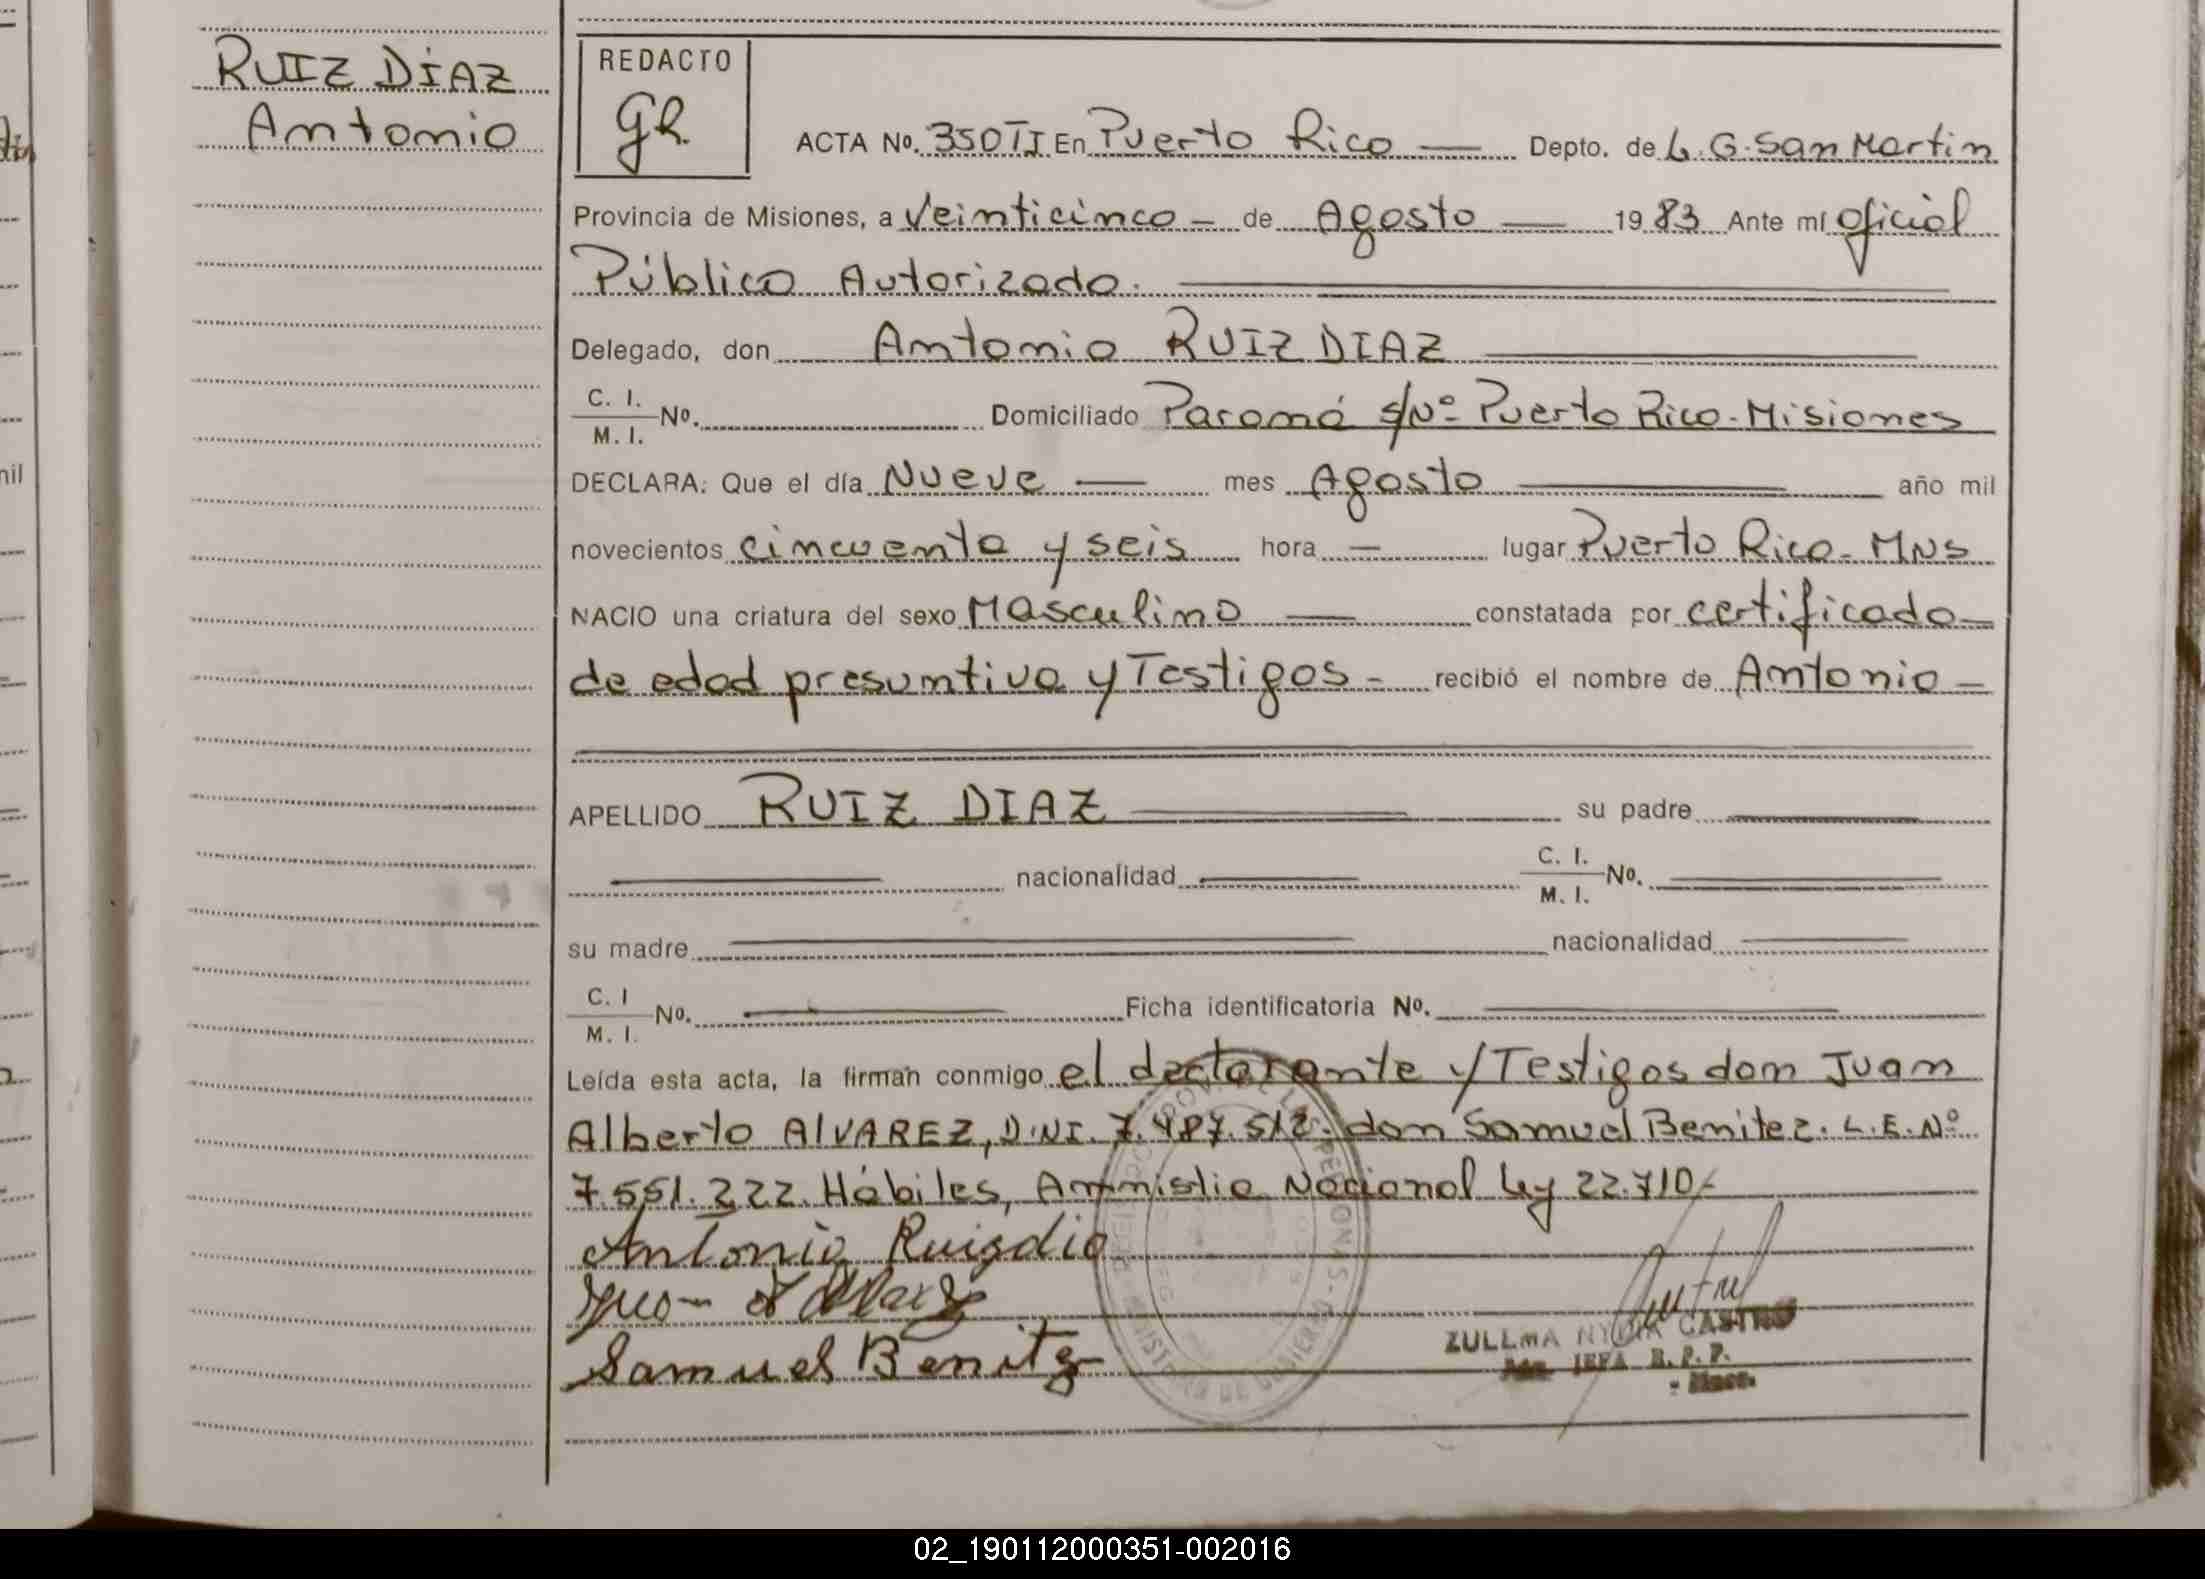 RUIZ DÍAZ
Antonio
REDACTO
gR
ACTA No. 350 TI En Puerto Rico — Depto. de L. G. San Martin
Provincia de Misiones, a Veinticinco — de Agosto — 1983 Ante mí oficial
Público Autorizado.
Delegado, don Antonio RUIZ DIAZ
C. I.
M. I. No. Domiciliado Paraná s/Nº Puerto Rico - Misiones
DECLARA: Que el día Nueve — mes Agosto — año mil
novecientos cincuenta y seis hora — lugar Puerto Rico - MNS
NACIO una criatura del sexo Masculino — constatada por certificado —
de edad presuntiva y Testigos - recibió el nombre de Antonio —
APELLIDO RUIZ DIAZ — su padre —
— nacionalidad — C. I.
M. I. No. —
su madre — nacionalidad —
C. I
M. I. No. — Ficha identificatoria No. —
Leída esta acta, la firman conmigo el declarante y Testigos don Juan
Alberto ALVAREZ, D.NI. 7.487.512. don Samuel Benitez. L.E. Nº
7.551.222. Hábiles, Amnistia Nacional Ley 22.710/-
Antonio Ruizdia
Samuel Benitez
ZULLMA NYDIA CASTRO
JEFA R.P.P.
02_190112000351-002016